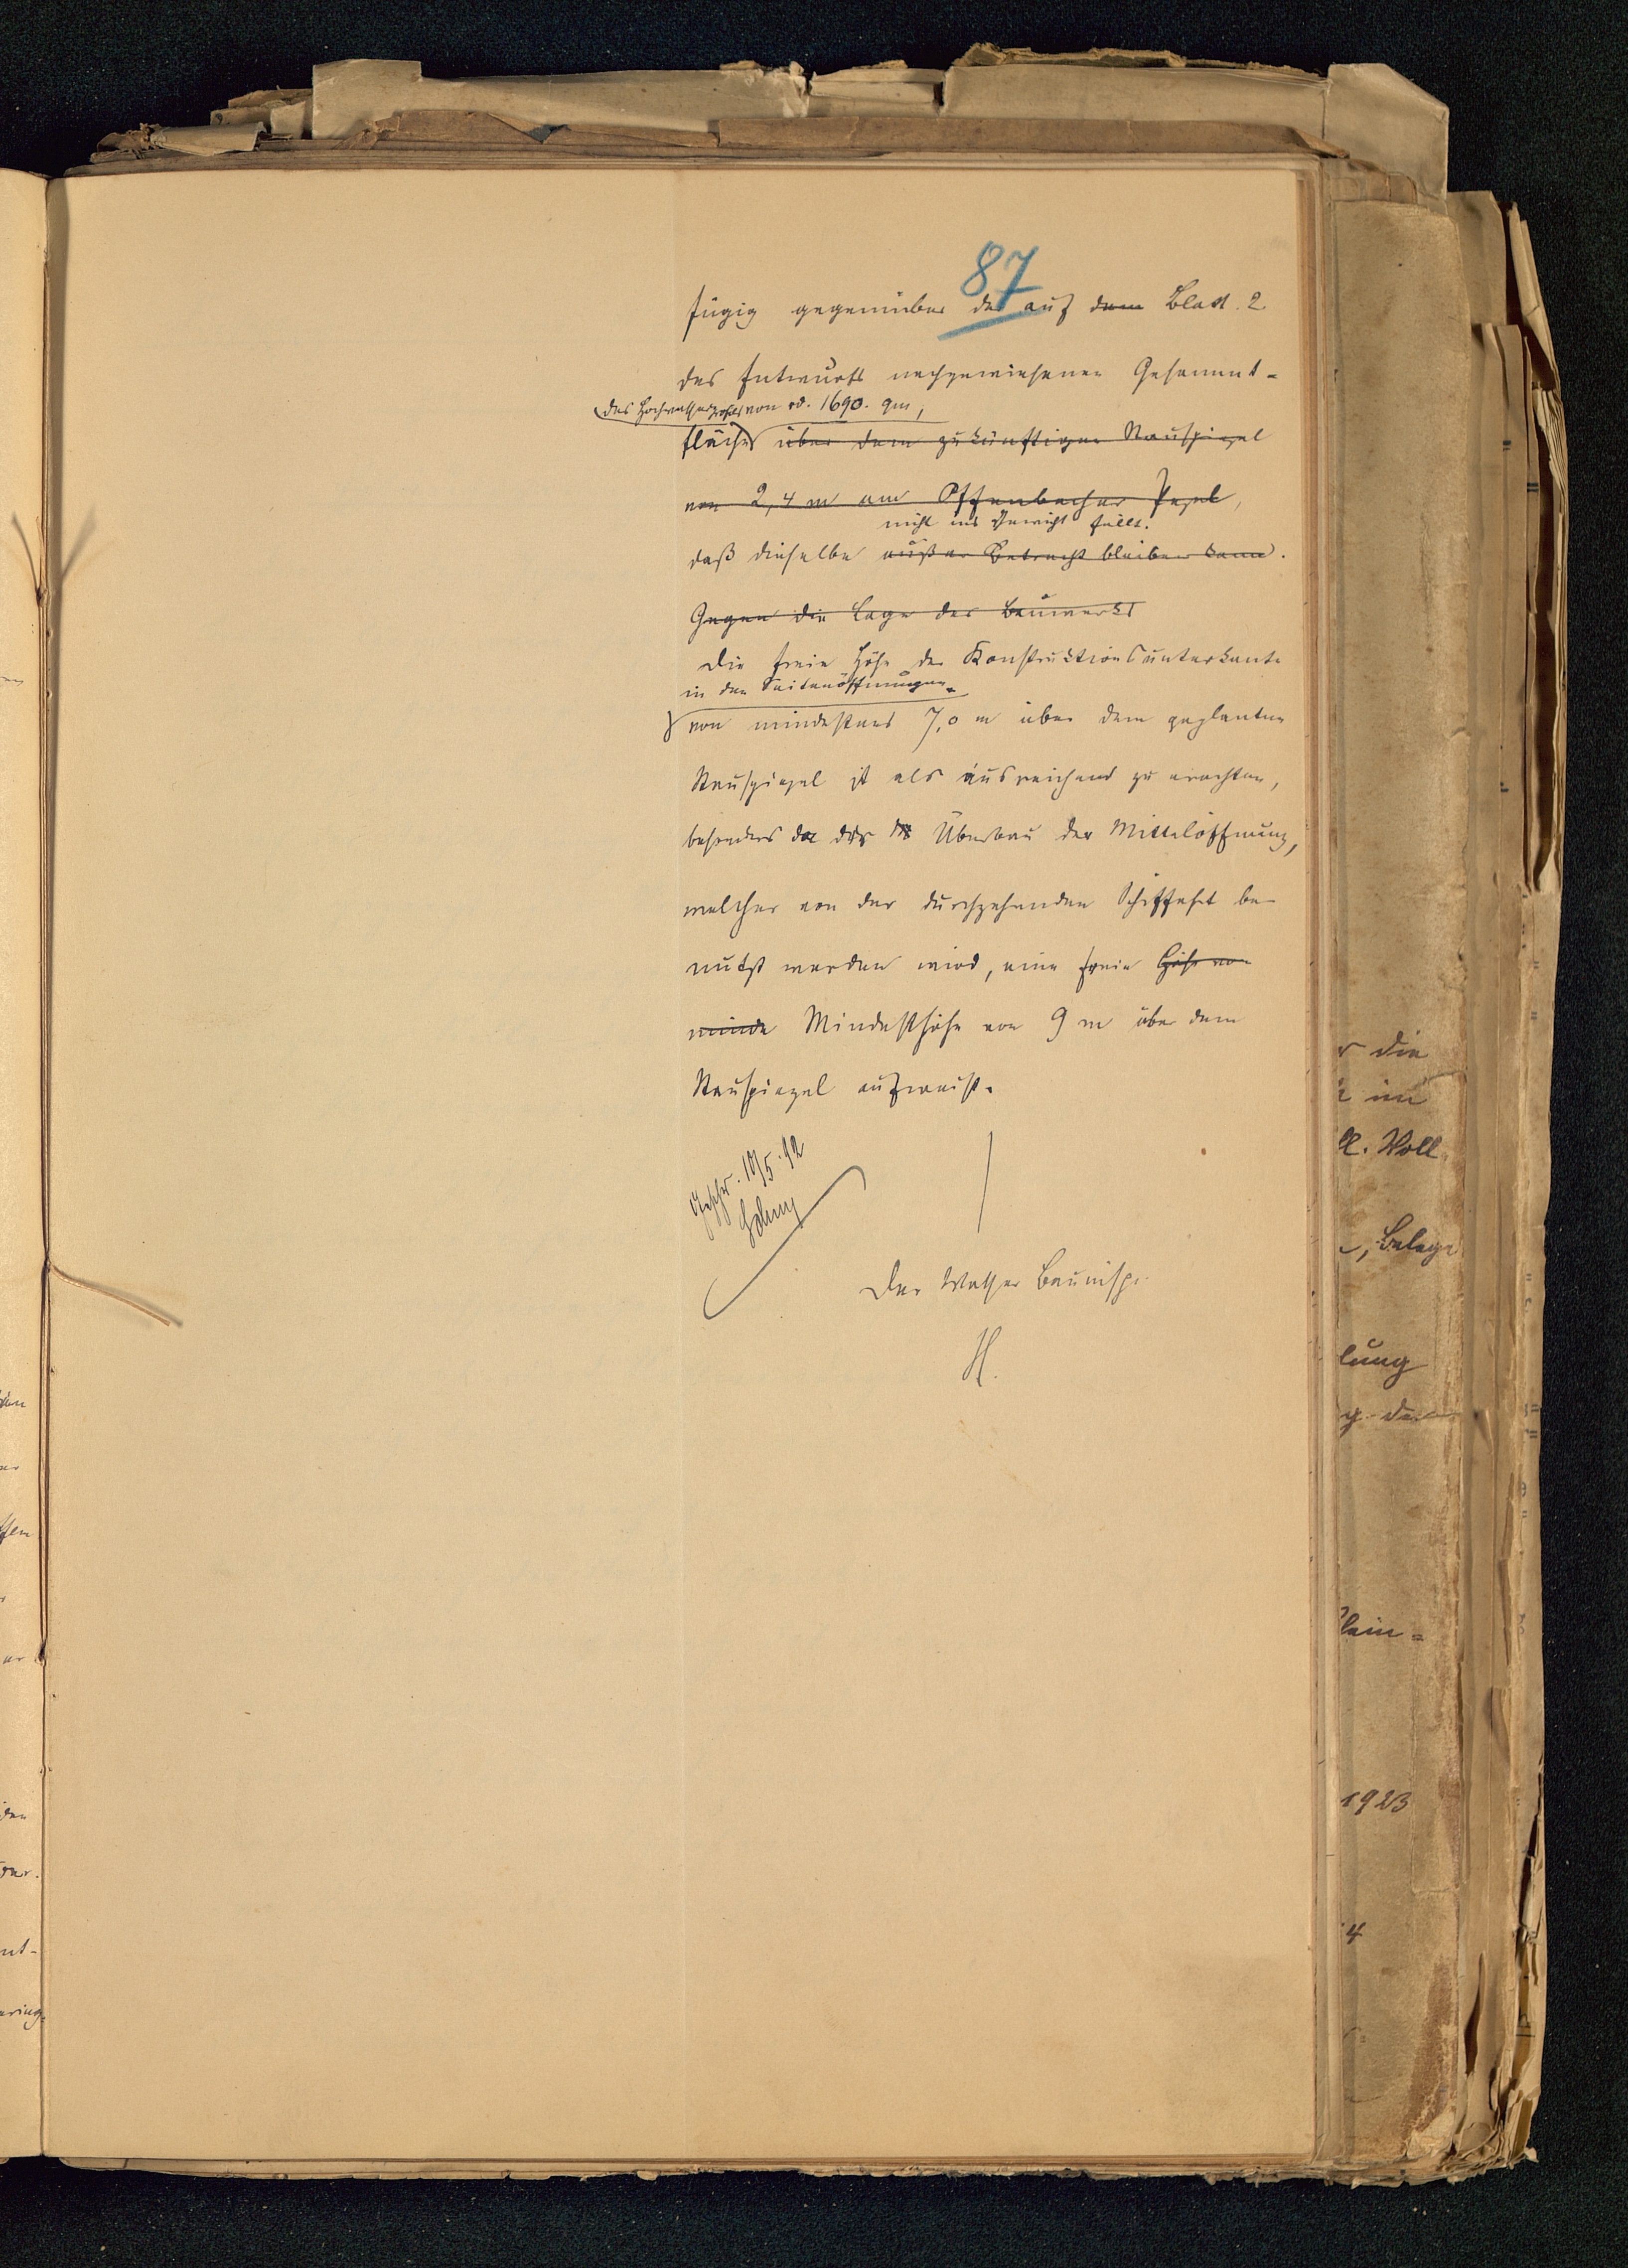 87
fügig gegenüber der auf dem Blatt 2
des Entwurfs nachgewiesenen Gesammt-
des Hochwasserprofils von rd. 1690. qm,
fläche über dem zukünftigen Stauspiegel
von 2,4 m am Offenbacher Pegel,
nicht ins Gewicht fällt.
daß dieselbe außer Betracht bleiben kann.
Gegen die Lage des Bauwerks
Die freie Höhe der Konstruktionsunterkante
in den Seitenöffnungen
von mindestens 7,0 m über dem geplanten
Stauspiegel ist als ausreichend zu erachten,
besonders da der Überbau der Mittelöffnung,
welcher von der durchgehenden Schiffahrt be-
nutzt werden wird, eine freie Höhe von
minde Mindesthöhe von 9 m über dem
Stauspiegel aufweist.
10/5.12
Der Wasser Bauinsp.
H.
r die
Woll
, Belege
lung
lein=
1923
4